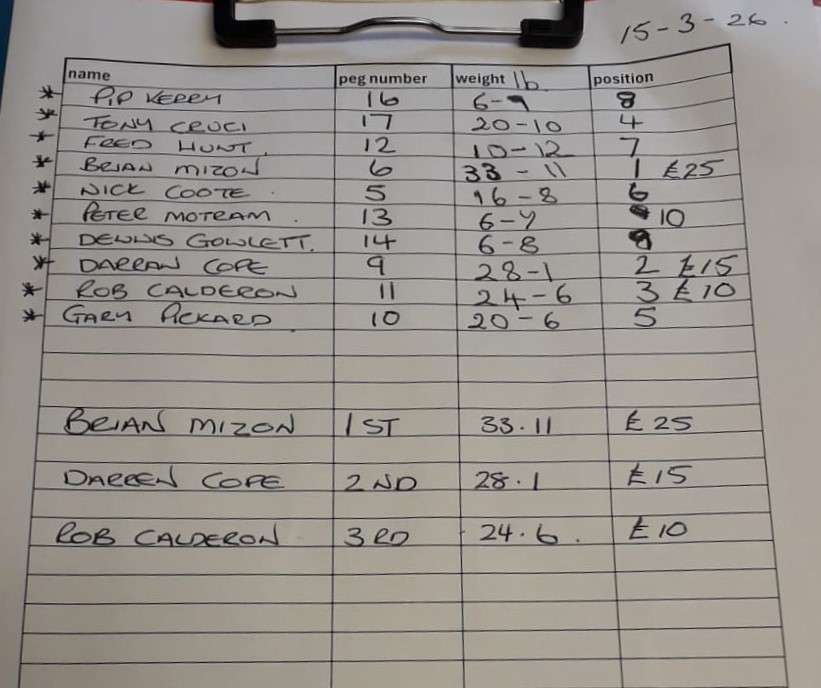 15-3-26.
name peg number weight lb position
* PIP KERRY 16 6-9 8
* TONY CRUCI 17 20-10 4
* FRED HUNT. 12 10-12 7
* BRIAN MIZON 6 33-11 1 £25
* NICK COOTE. 5 16-8 6
* PETER MOTRAM. 13 6-4 10
* DENNIS GOWLETT. 14 6-8 9
* DARRAN COPE 9 28-1 2 £15
* ROB CALDERON 11 24-6 3 £10
* GARY PICKARD. 10 20-6 5
BRIAN MIZON 1ST 33.11 £25
DARREN COPE 2ND 28.1 £15
ROB CALDERON 3RD 24.6. £10